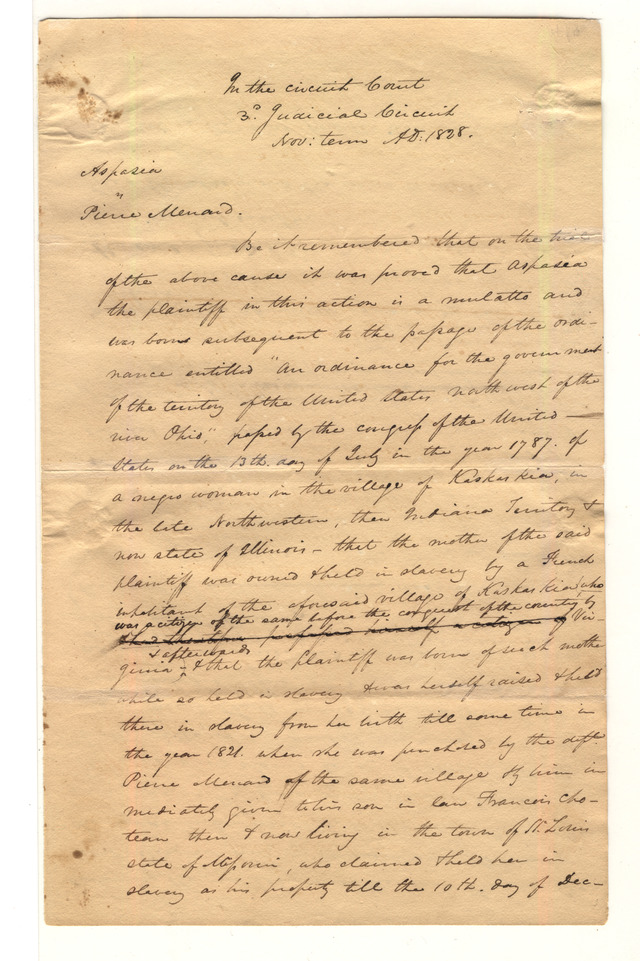 In the circuit Court
3d. Judicial Circuit
Nov: term AD. 1828.
Aspasia
vs
Pierre Menard.
Be it remembered that on the trial
of the above cause it was proved that Aspasia
the plaintiff in this action is a mulatto and
was born subsequent to the passage of the ordi-
nance entitled "An ordinance for the government
of the territory of the United States northwest of the
river Ohio", passed by the congress of the United
States on the 13th. day of July in the year 1787. of
a negro woman in the village of Kaskaskia, in
the late Northwestern, then Indiana Territory &
now state of Illinois – that the mother of the said
plaintiff was owned & held in slavery by a French
inhabitant of the aforesaid village of Kaskaskia, who
was a citizen of the same before the conquest of the country by
professed himself a citizen of Vir-
& afterwards
ginia – & that the plaintiff was born of such mother
while so held in slavery & was herself raised & held
there in slavery from her birth till some time in
the year 1821. when she was purchased by the deft.
Pierre Menard of the same village & by him im
mediately given to his son in law Francois Cho-
teau then & now living in the town of St. Louis
state of Missouri, who claimed & held her in
slavery as his property till the 10th. day of Dec-